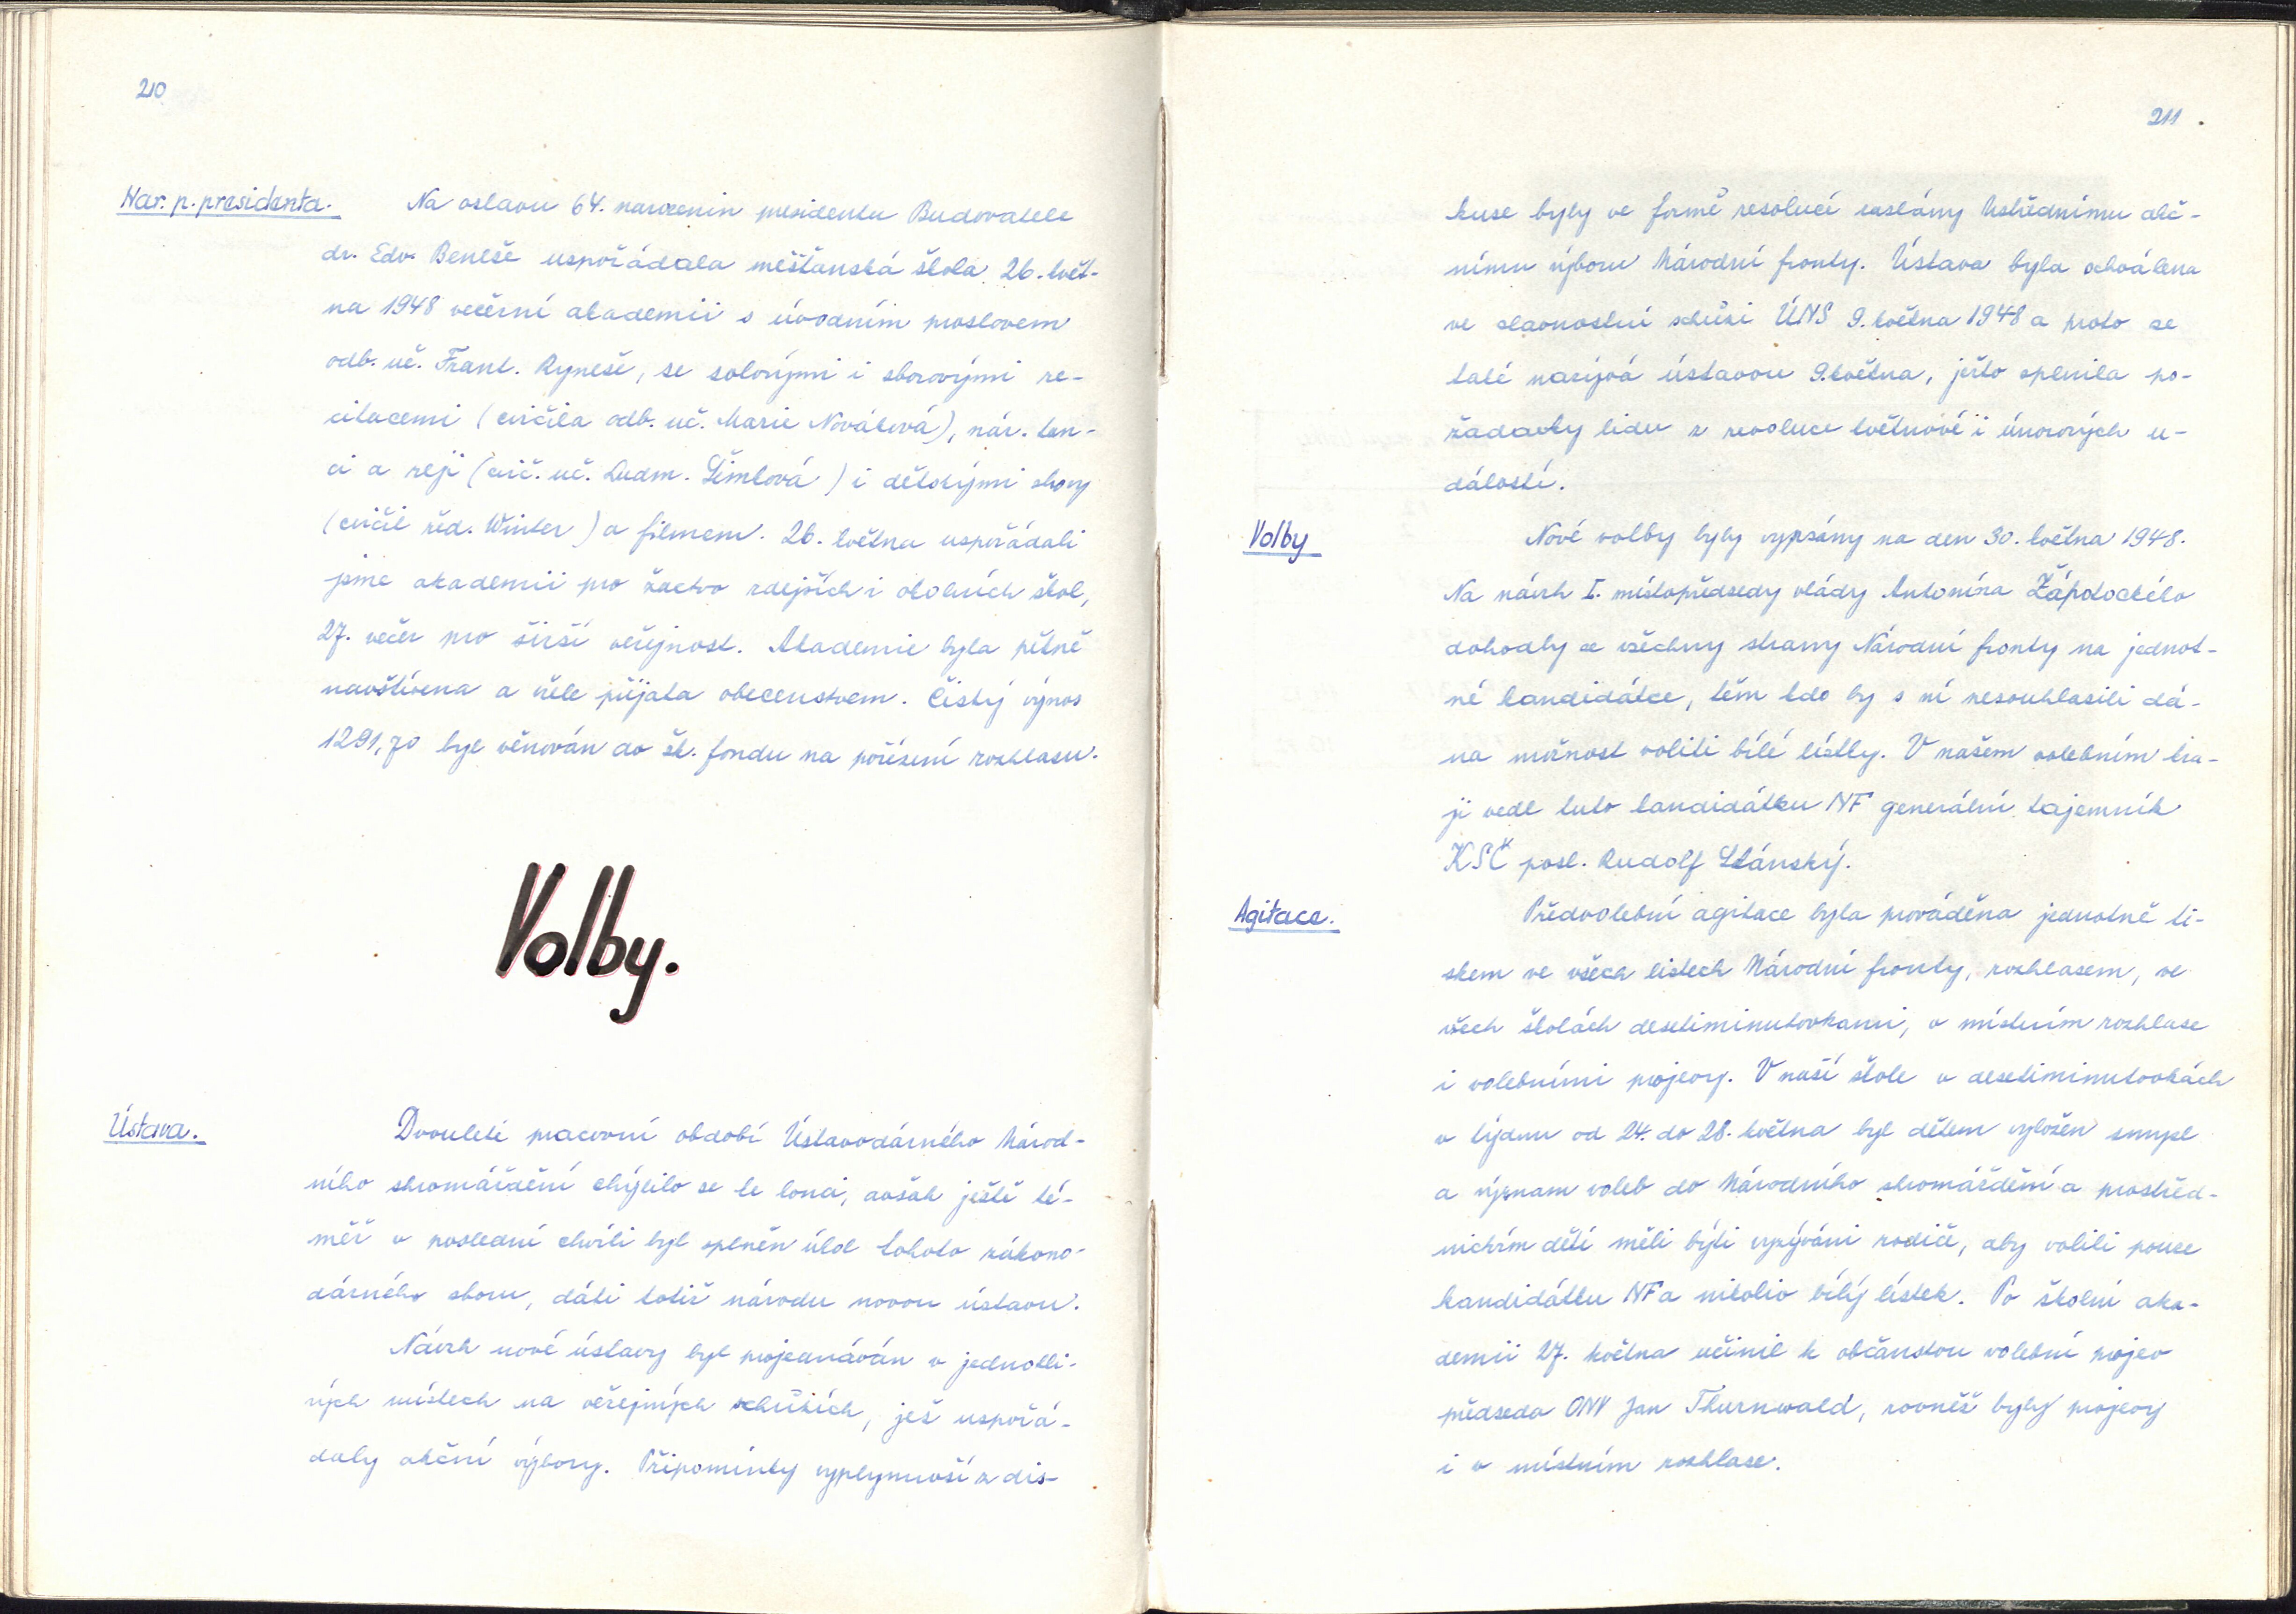 210
Nar. p. presidenta.
Na oslavu 64. narozenin presidenta Budovatele
dr. Edv. Beneše uspořádala měšťanská škola 26. květ-
na 1948 večerní akademii s úvodním proslovem
odb. uč. Frant. Ryneše, se solovými i sborovými re-
citacemi (cvičila odb. uč. Marie Nováková), nár. tan-
ci a reji (cvič. uč. Ludm. Šimková) i dětskými sbory
(cvičil řed. Winter) a filmem. 26. května uspořádali
jsme akademii pro žactvo zdejších i okolních škol,
27. večer pro širší veřejnost. Akademie byla pěkně
navštívena a vřele přijata obecenstvem. Čistý výnos
1291,70 byl věnován do šk. fondu na pořízení rozhlasu.
Volby.
Ústava.
Dvouleté pracovní období Ústavodárného Národ-
ního shromáždění chýlilo se ke konci, avšak ještě té-
měř v poslední chvíli byl splněn úkol tohoto zákono-
dárného sboru, dáti totiž národu novou ústavu.
Návrh nové ústavy byl projednáván v jednotli-
vých místech na veřejných schůzích, jež uspořá-
daly akční výbory. Připomínky vyplynuvší z dis-
211
kuse byly ve formě resolucí zaslány Ústřednímu akč-
nímu výboru Národní fronty. Ústava byla schválena
ve slavnostní schůzi ÚNS 9. května 1948 a proto se
také nazývá ústavou 9. května, ježto splnila po-
žadavky lidu z revoluce květnové i únorových u-
dálostí.
Volby
Nové volby byly vypsány na den 30. května 1948.
Na návrh I. místopředsedy vlády Antonína Zápotockého
dohodly se všechny strany Národní fronty na jednot-
né kandidátce, těm kdo by s ní nesouhlasili dá-
na možnost voliti bílé lístky. V našem volebním kra-
ji vedl tuto kandidátku NF generální tajemník
KSČ posl. Rudolf Slánský.
Agitace.
Předvolební agitace byla prováděna jednotně ti-
skem ve všech listech Národní fronty, rozhlasem, ve
všech školách desetiminutovkami, v místním rozhlase
i volebními projevy. V naší škole v desetiminutovkách
v týdnu od 24. do 28. května byl dětem vyložen smysl
a význam voleb do Národního shromáždění a prostřed-
nictvím dětí měli býti vyzýváni rodiče, aby volili pouze
kandidátku NF a nikoliv bílý lístek. Po školní aka-
demii 27. května učinil k občanstvu volební projev
předseda ONV Jan Thurnwald, rovněž byly projevy
i v místním rozhlase.